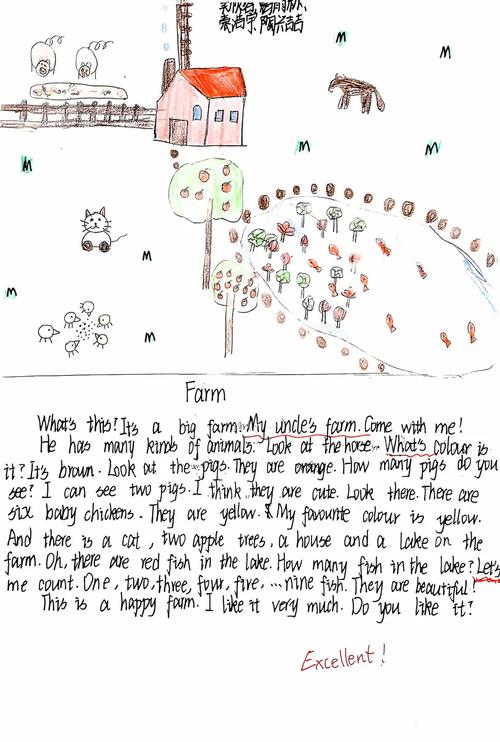 秦浩宇 陶兴喆
Farm
What's this? It's a big farm. My uncle's farm. Come with me!
He has many kinds of animals. Look at the horse. What's colour is
it? It's brown. Look at the pigs. They are orange. How many pigs do you
see? I can see two pigs. I think they are cute. Look there. There are
six baby chickens. They are yellow. My favourite colour is yellow.
And there is a cat, two apple trees, a house and a lake on the
farm. Oh, there are red fish in the lake. How many fish in the lake? Let's
me count. One, two, three, four, five, ... nine fish. They are beautiful!
This is a happy farm. I like it very much. Do you like it?
Excellent!